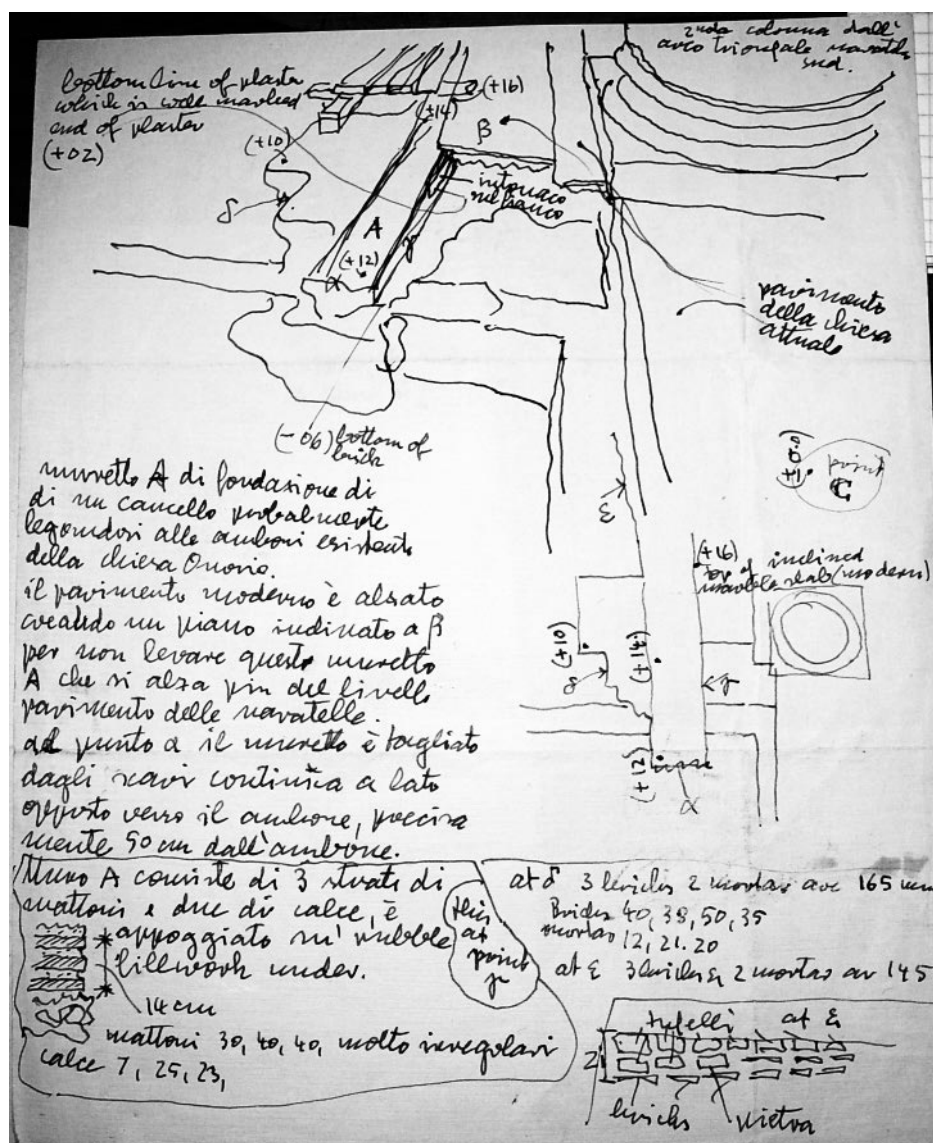 2nda colonna dall'
arco trionfale navatella
sud.
bottom line of plaster
which is well marked
end of plaster
(+02)
(+16)
(+14)
β
(+10)
δ
intonaco
sul fianco
A
γ
(+12)
α
pavimento
della chiesa
attuale
(-06) bottom of
brick
ε
(±0.0)
point
C
muretto A di fondazione di
di un cancello probalmente
legandosi alle amboni esistente
della chiesa Onorio.
il pavimento moderno è alzato
creando un piano inclinato a β
per non levare questo muretto
A che si alza piu del livello
pavimento delle navatelle.
al punto α il muretto è tagliato
dagli scavi continua a lato
opposto verso il ambone, precisa
mente 50 cm dall'ambone.
(+16)
top of inclined
marble slab (modern)
(+10)
δ
(+14)
γ
(+12)
α
Muro A consiste di 3 strati di
mattoni e due di calce, è
appoggiato su' rubble
fillwork under.
this
at
point
γ
14 cm
mattoni 30, 40, 40, molto irregolari
calce 7, 25, 23,
at δ 3 bricks 2 mortar ave 165 mm
Bricks 40, 38, 50, 35
mortar 12, 21. 20
at ε 3 bricks 2 mortar av 145
tufelli at ε
2
bricks pietra